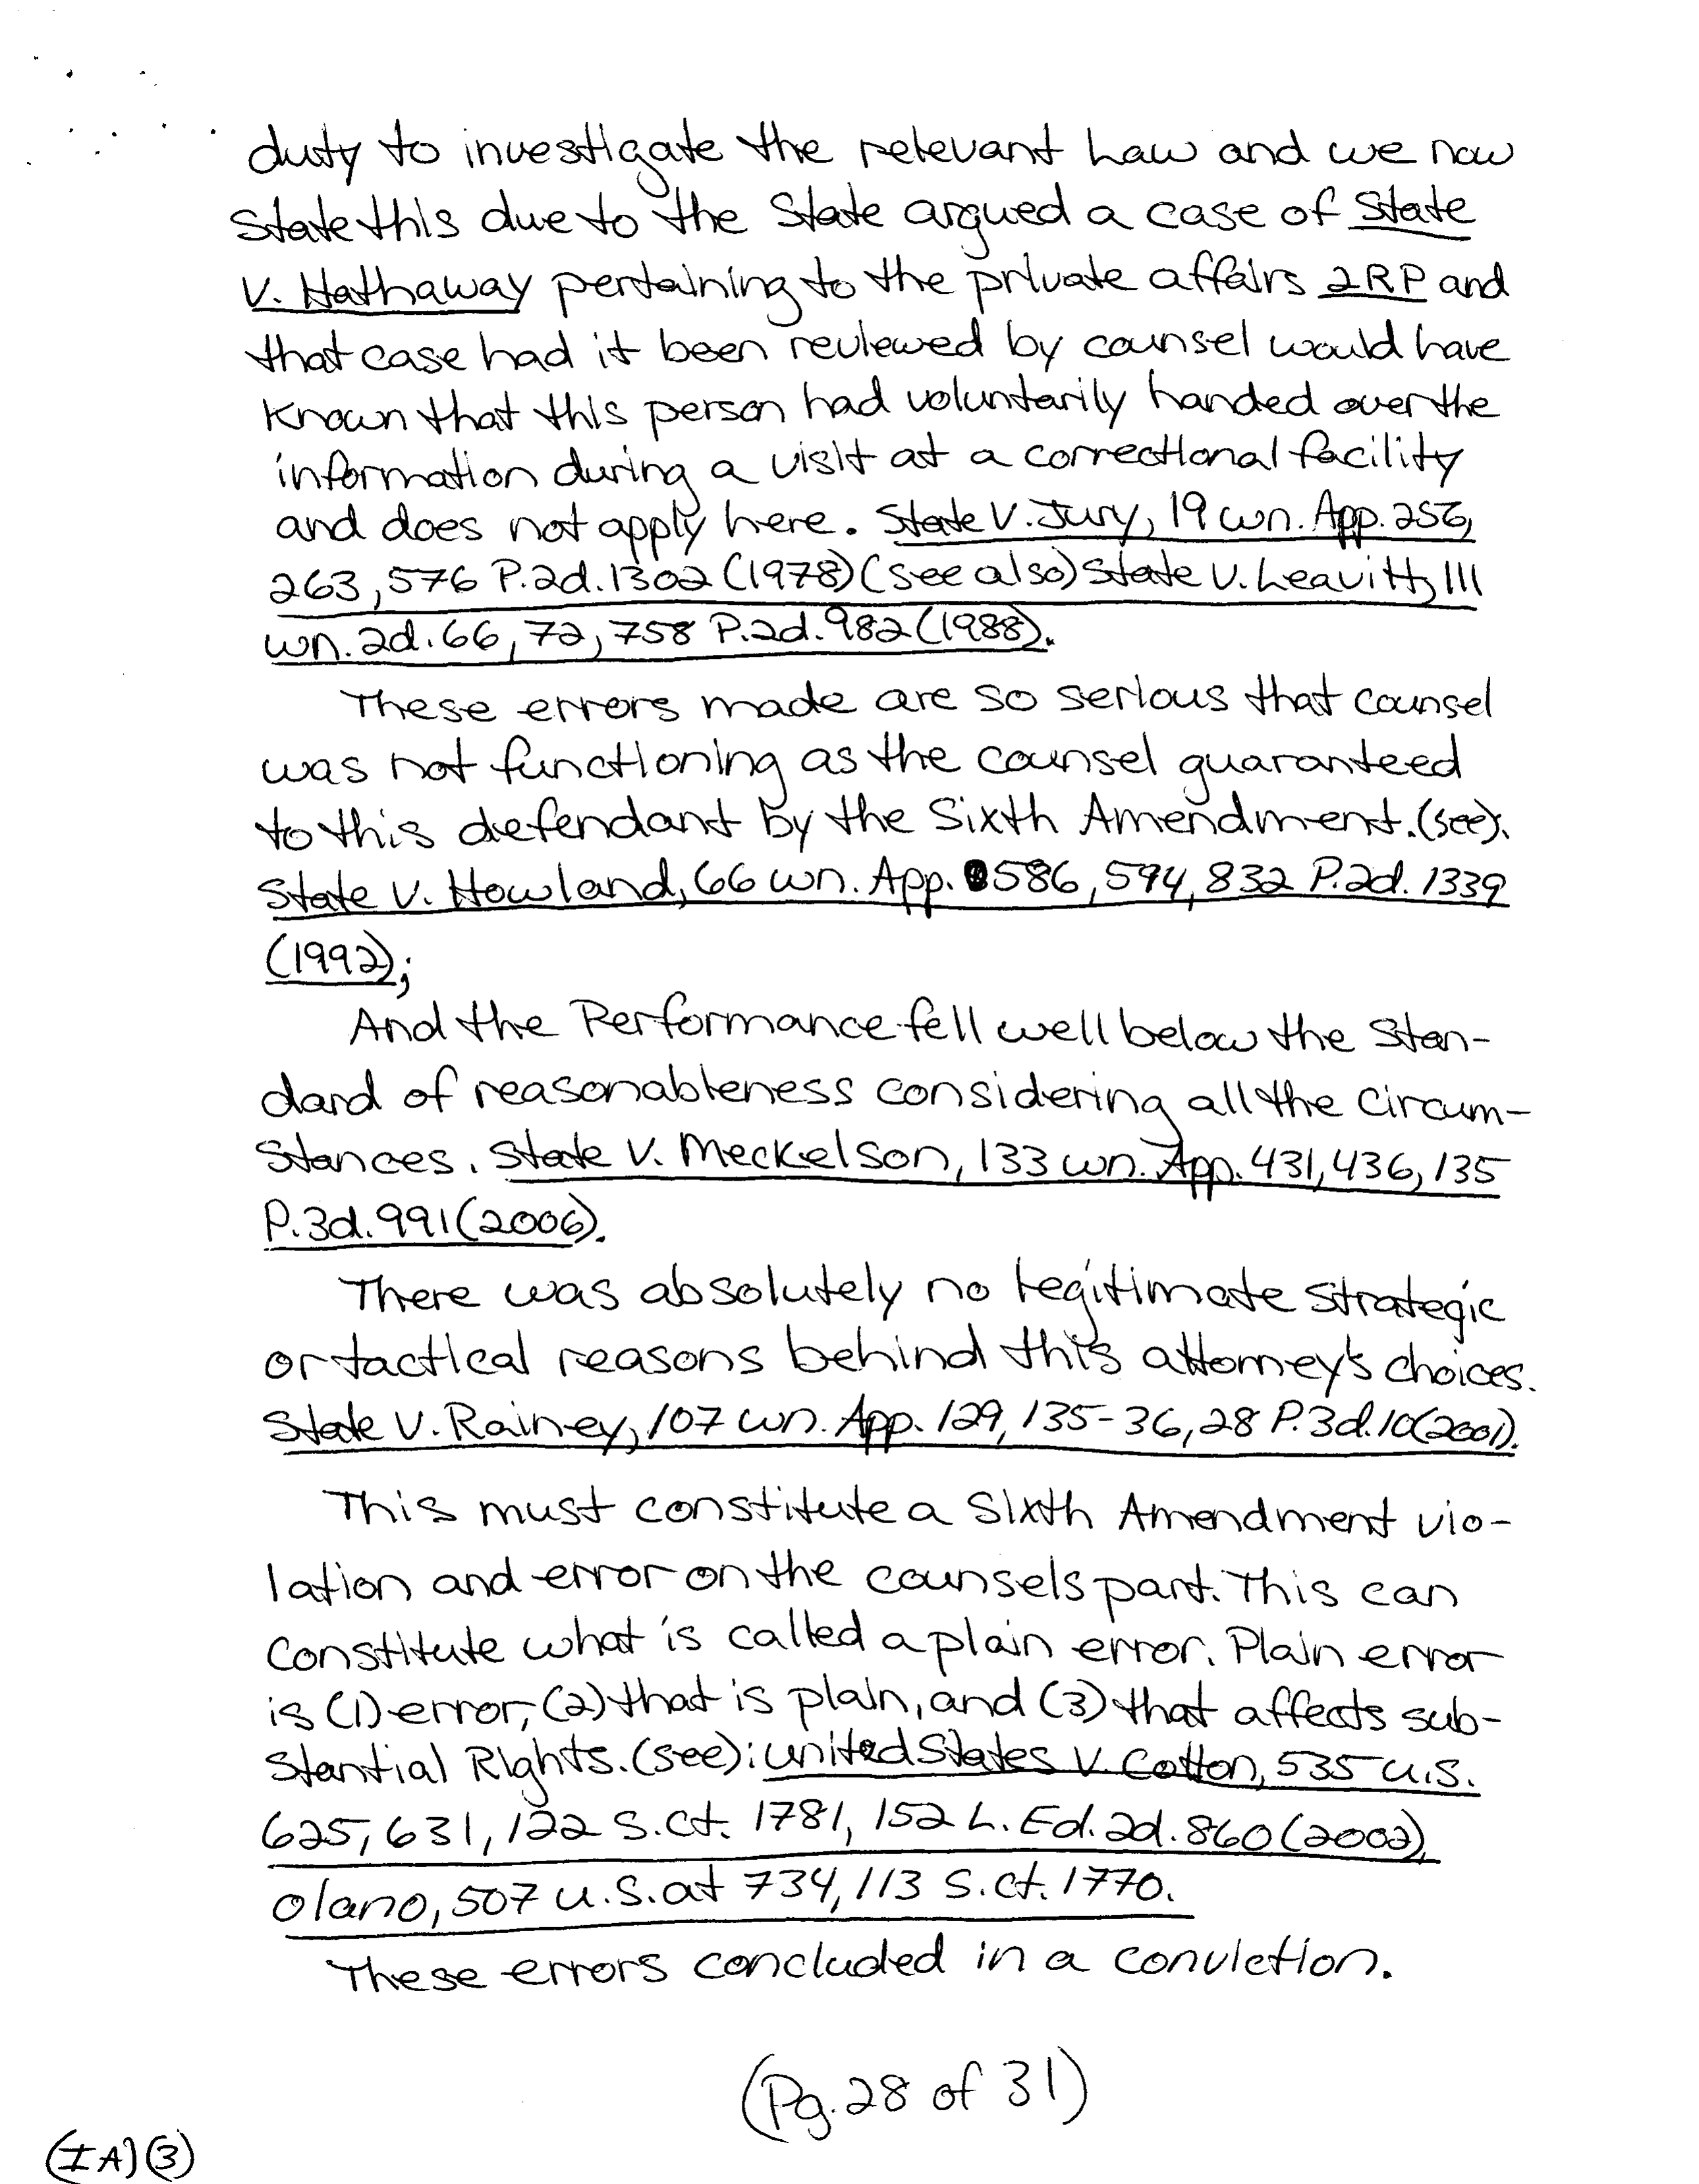 duty to investigate the relevant Law and we now
State this due to the State argued a case of State
V. Hathaway pertaining to the private affairs 2RP and
that case had it been reviewed by counsel would have
Known that this person had voluntarily handed over the
information during a visit at a correctional facility
and does not apply here. State V. Jury, 19 wn. App. 256,
263, 576 P.2d. 1302 (1978) (see also) State V. Leavitt, 111
wn. 2d. 66, 72, 758 P.2d. 982 (1988).
These errors made are so serious that counsel
was not functioning as the counsel guaranteed
to this defendant by the Sixth Amendment. (see).
State v. Howland, 66 wn. App. 586, 594, 832 P.2d. 1339
(1992);
And the Performance fell well below the Stan-
dard of reasonableness considering all the Circum-
Stances. State V. Meckelson, 133 wn. App. 431, 436, 135
P.3d. 991 (2006).
There was absolutely no legitimate strategic
or tactical reasons behind this attorney's choices.
State V. Rainey, 107 wn. App. 129, 135-36, 28 P.3d. 10 (2001).
This must constitute a Sixth Amendment vio-
lation and error on the counsels part. This can
Constitute what is called a plain error. Plain error
is (1) error, (2) that is plain, and (3) that affects sub-
Stantial Rights. (see): united States V. Cotton, 535 u.s.
625, 631, 122 S.ct. 1781, 152 L. Ed. 2d. 860 (2002),
Olano, 507 u.S. at 734, 113 S.ct. 1770.
These errors concluded in a conviction.
(Pg. 28 of 31)
(IA)(3)